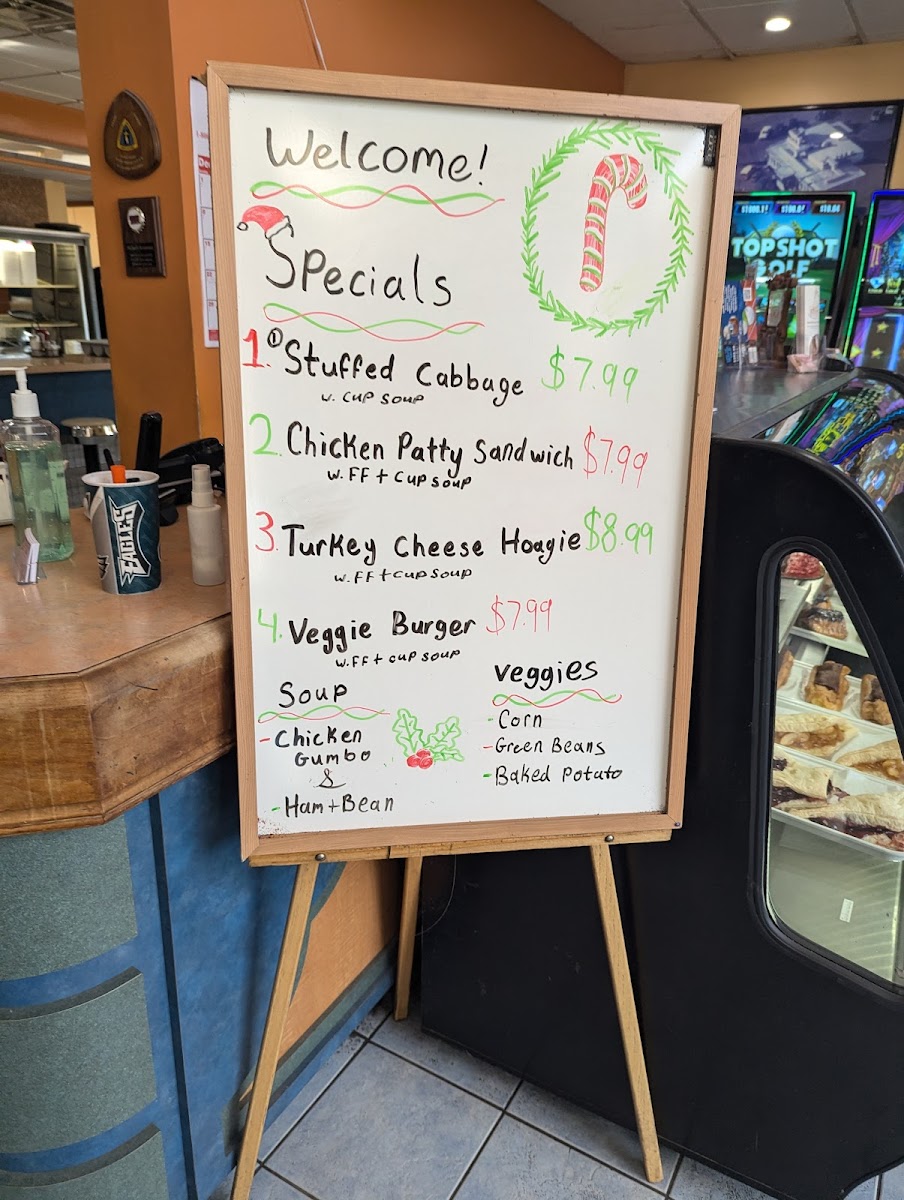 Welcome!
Specials
1. ① Stuffed Cabbage $7.99
w. cup soup
2. Chicken Patty Sandwich $7.99
w. FF + cup soup
3. Turkey Cheese Hoagie $8.99
w. FF + cup soup
4. Veggie Burger $7.99
w. FF + cup soup
Soup
- Chicken
Gumbo
&
- Ham + Bean
Veggies
- Corn
- Green Beans
- Baked Potato
EAGLES
TOP SHOT
GOLF